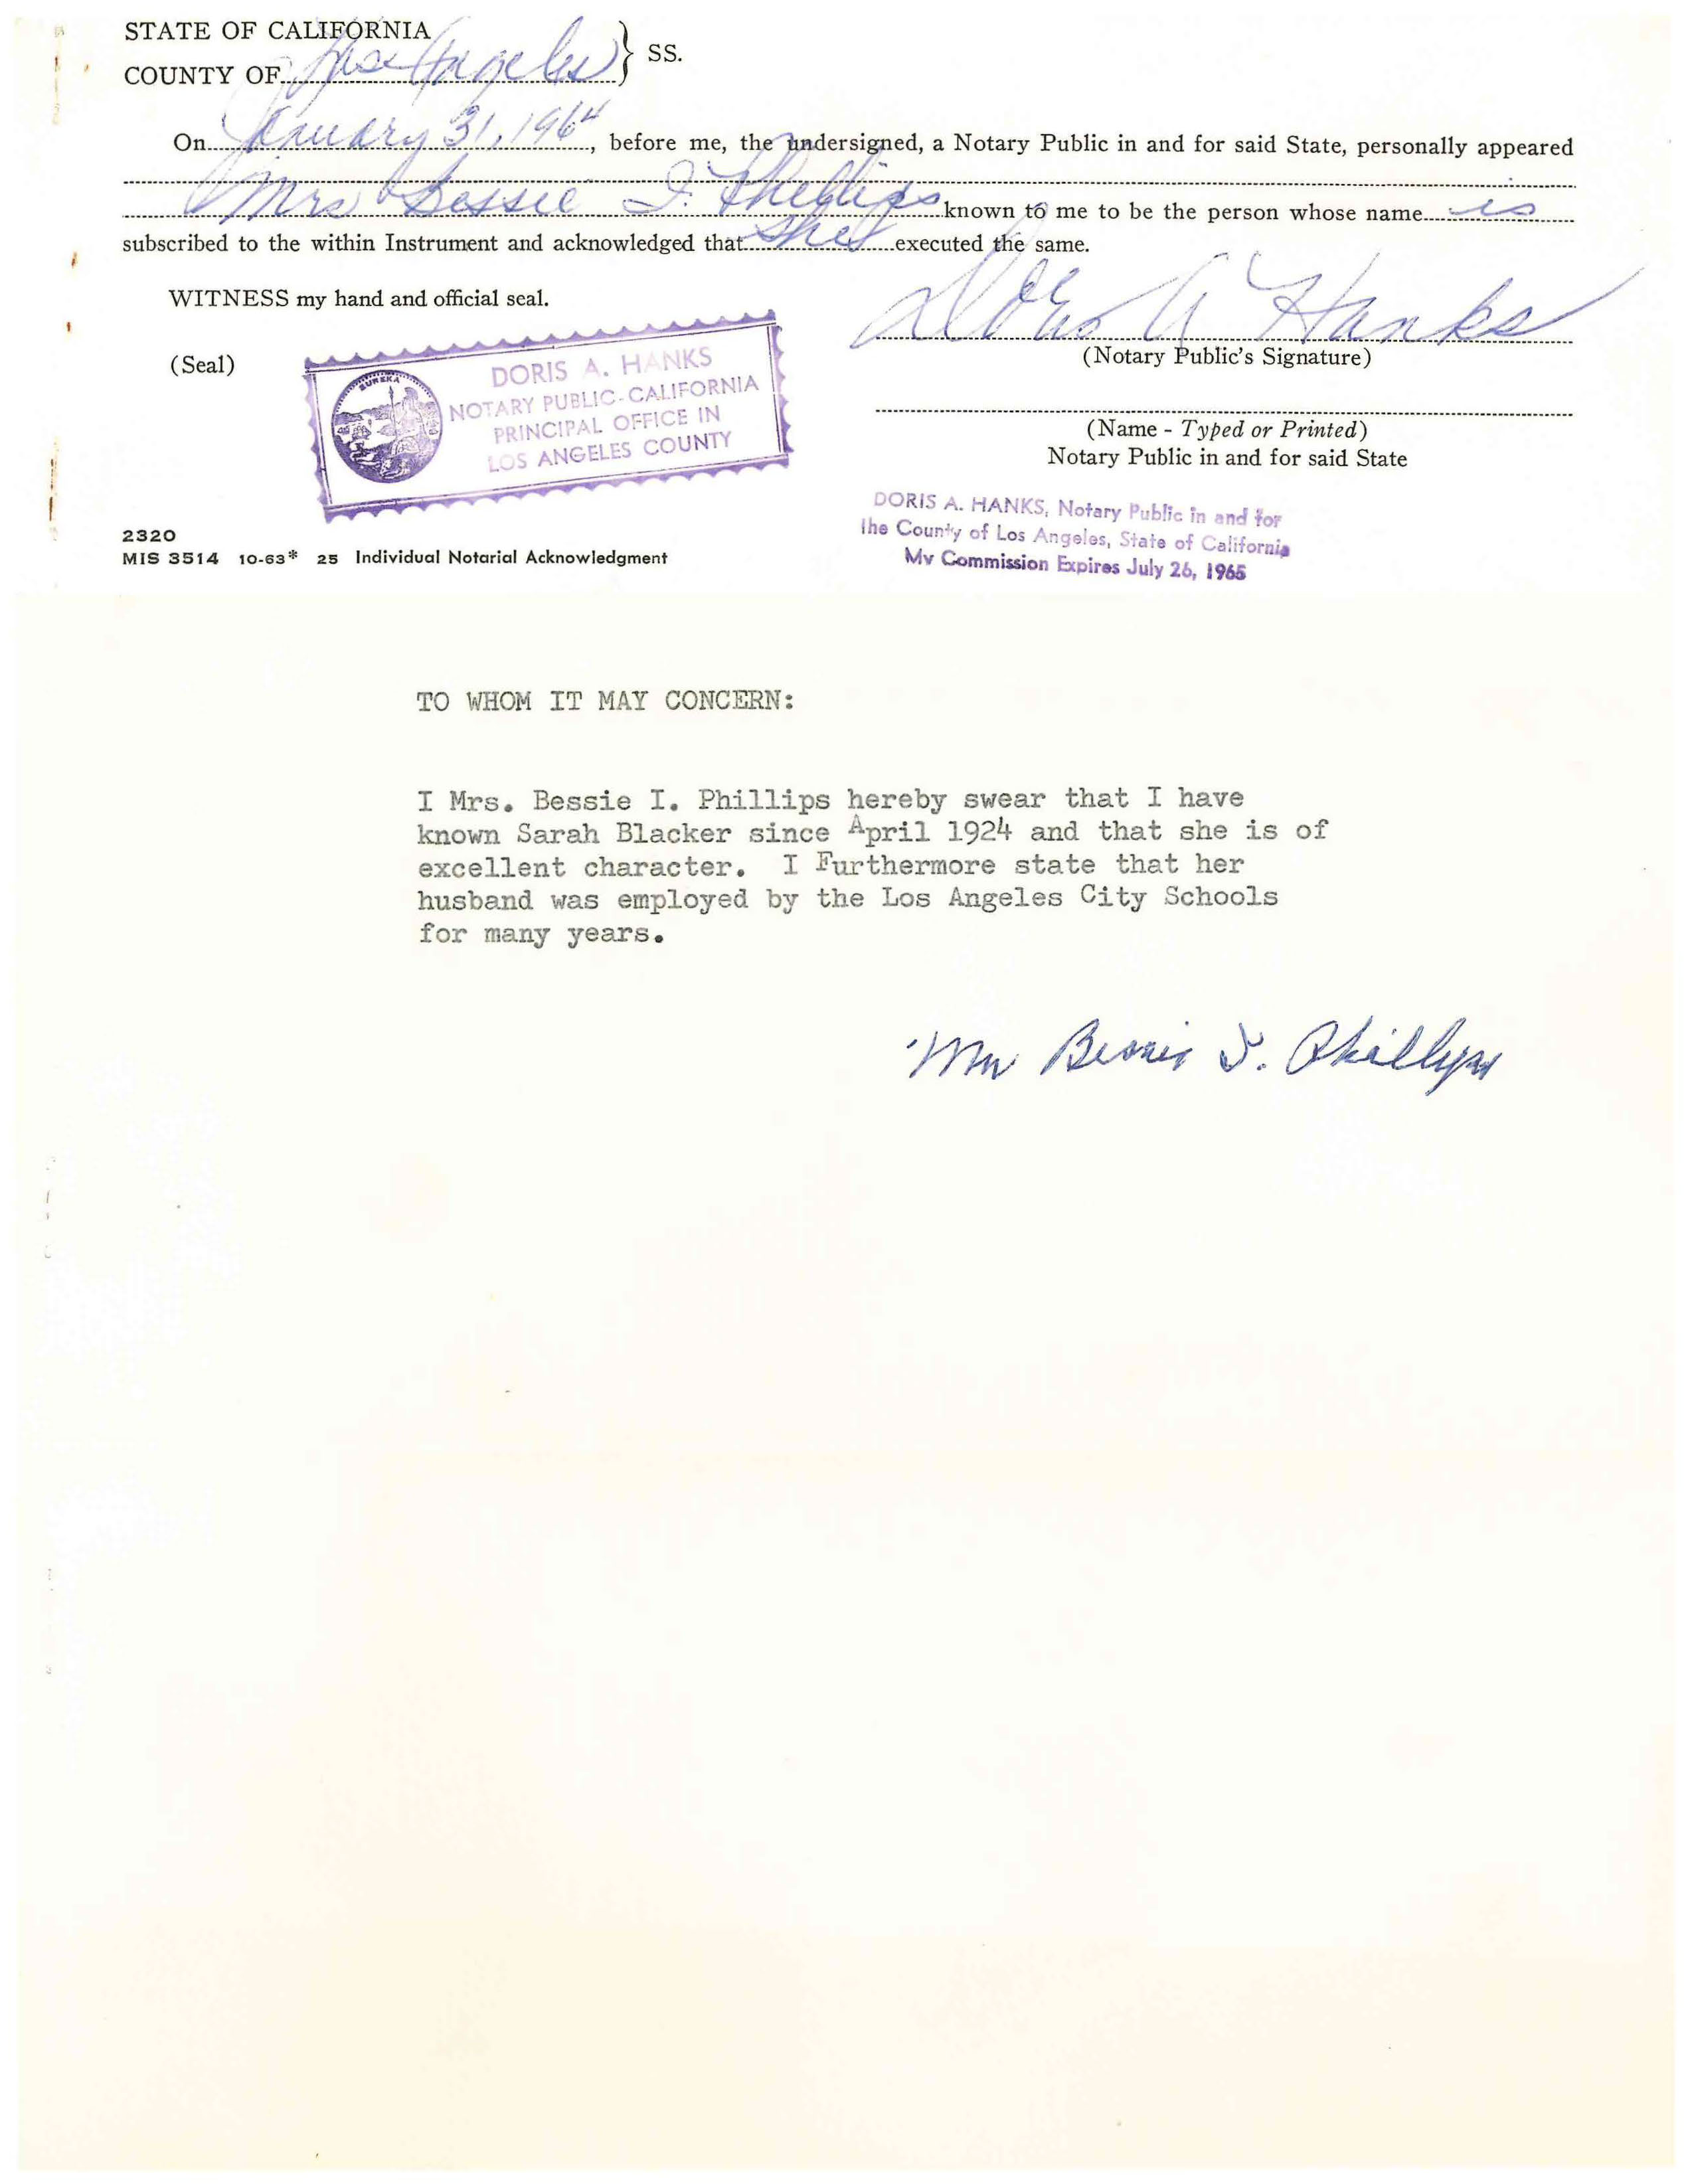 STATE OF CALIFORNIA
COUNTY OF Los Angeles } SS.
On January 31, 1964, before me, the undersigned, a Notary Public in and for said State, personally appeared
Mrs Bessie I. Phillips known to me to be the person whose name is
subscribed to the within Instrument and acknowledged that she executed the same.
WITNESS my hand and official seal.
Doris A Hanks
(Seal)
(Notary Public's Signature)
EUREKA
DORIS A. HANKS
NOTARY PUBLIC-CALIFORNIA
PRINCIPAL OFFICE IN
LOS ANGELES COUNTY
(Name - Typed or Printed)
Notary Public in and for said State
DORIS A. HANKS, Notary Public in and for
the County of Los Angeles, State of California
My Commission Expires July 26, 1965
2320
MIS 3514 10-63* 25 Individual Notarial Acknowledgment
TO WHOM IT MAY CONCERN:
I Mrs. Bessie I. Phillips hereby swear that I have
known Sarah Blacker since April 1924 and that she is of
excellent character. I Furthermore state that her
husband was employed by the Los Angeles City Schools
for many years.
Mrs Bessie I. Phillips